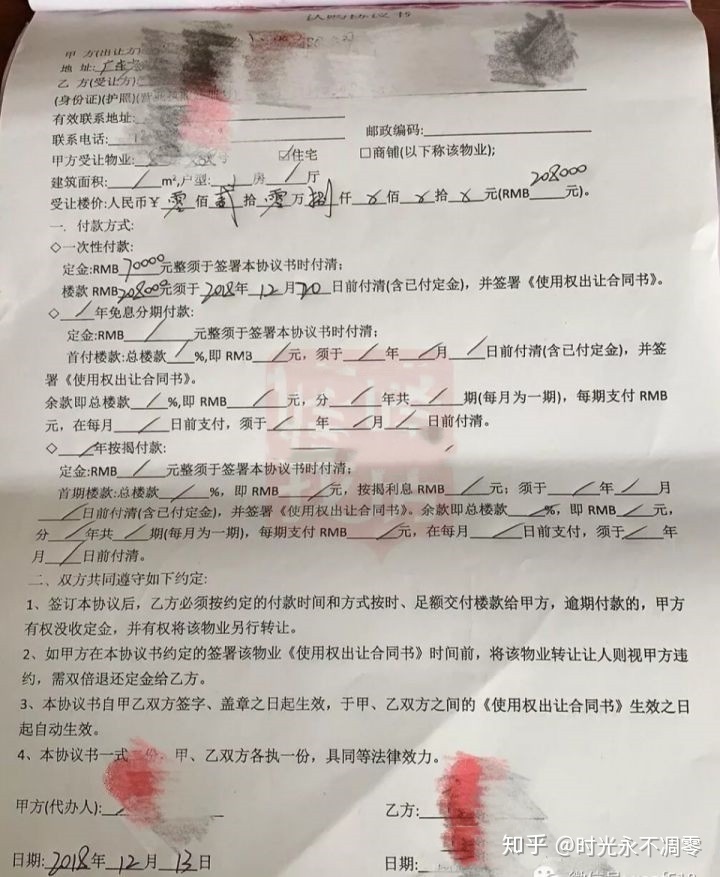 认购协议书
甲 方(出让方)
地 址:广东
乙 方(受让方):
(身份证)(护照)
有效联系地址:
联系电话: 邮政编码:
甲方受让物业: ☑住宅 □商铺(以下称该物业);
建筑面积: / m²,户型: / 房 / 厅
受让楼价:人民币￥ 零 佰 贰 拾 零 万 捌 仟 x 佰 x 拾 x 元(RMB 208000 元)。
一. 付款方式:
◇一次性付款:
定金:RMB 70000 元整须于签署本协议书时付清;
楼款 RMB 208000 元须于 2018 年 12 月 20 日前付清(含已付定金)，并签署《使用权出让合同书》。
◇ / 年免息分期付款:
定金:RMB / 元整须于签署本协议书时付清;
首付楼款:总楼款 / %,即 RMB / 元，须于 / 年 / 月 / 日前付清(含已付定金)，并签
署《使用权出让合同书》。
余款即总楼款 / %,即 RMB / 元，分 / 年共 / 期(每月为一期)，每期支付 RMB
元，在每月 / 日前支付，须于 / 年 / 月 / 日前付清。
◇ / 年按揭付款:
定金:RMB / 元整须于签署本协议书时付清;
首期楼款:总楼款 / %，即 RMB / 元，按揭利息 RMB / 元；须于 / 年 / 月
/ 日前付清(含已付定金)，并签署《使用权出让合同书》。余款即总楼款 / %，即 RMB / 元，
分 / 年共 / 期(每月为一期)，每期支付 RMB / 元，在每月 / 日前支付，须于 / 年
月 / 日前付清。
二、双方共同遵守如下约定:
1、签订本协议后，乙方必须按约定的付款时间和方式按时、足额交付楼款给甲方，逾期付款的，甲方
有权没收定金，并有权将该物业另行转让。
2、如甲方在本协议书约定的签署该物业《使用权出让合同书》时间前，将该物业转让让人则视甲方违
约，需双倍退还定金给乙方。
3、本协议书自甲乙双方签字、盖章之日起生效，于甲、乙双方之间的《使用权出让合同书》生效之日
起自动生效。
4、本协议书一式 份，甲、乙双方各执一份，具同等法律效力。
甲方(代办人): 乙方:
日期: 2018 年 12 月 13 日 日期:
知乎 @时光永不凋零